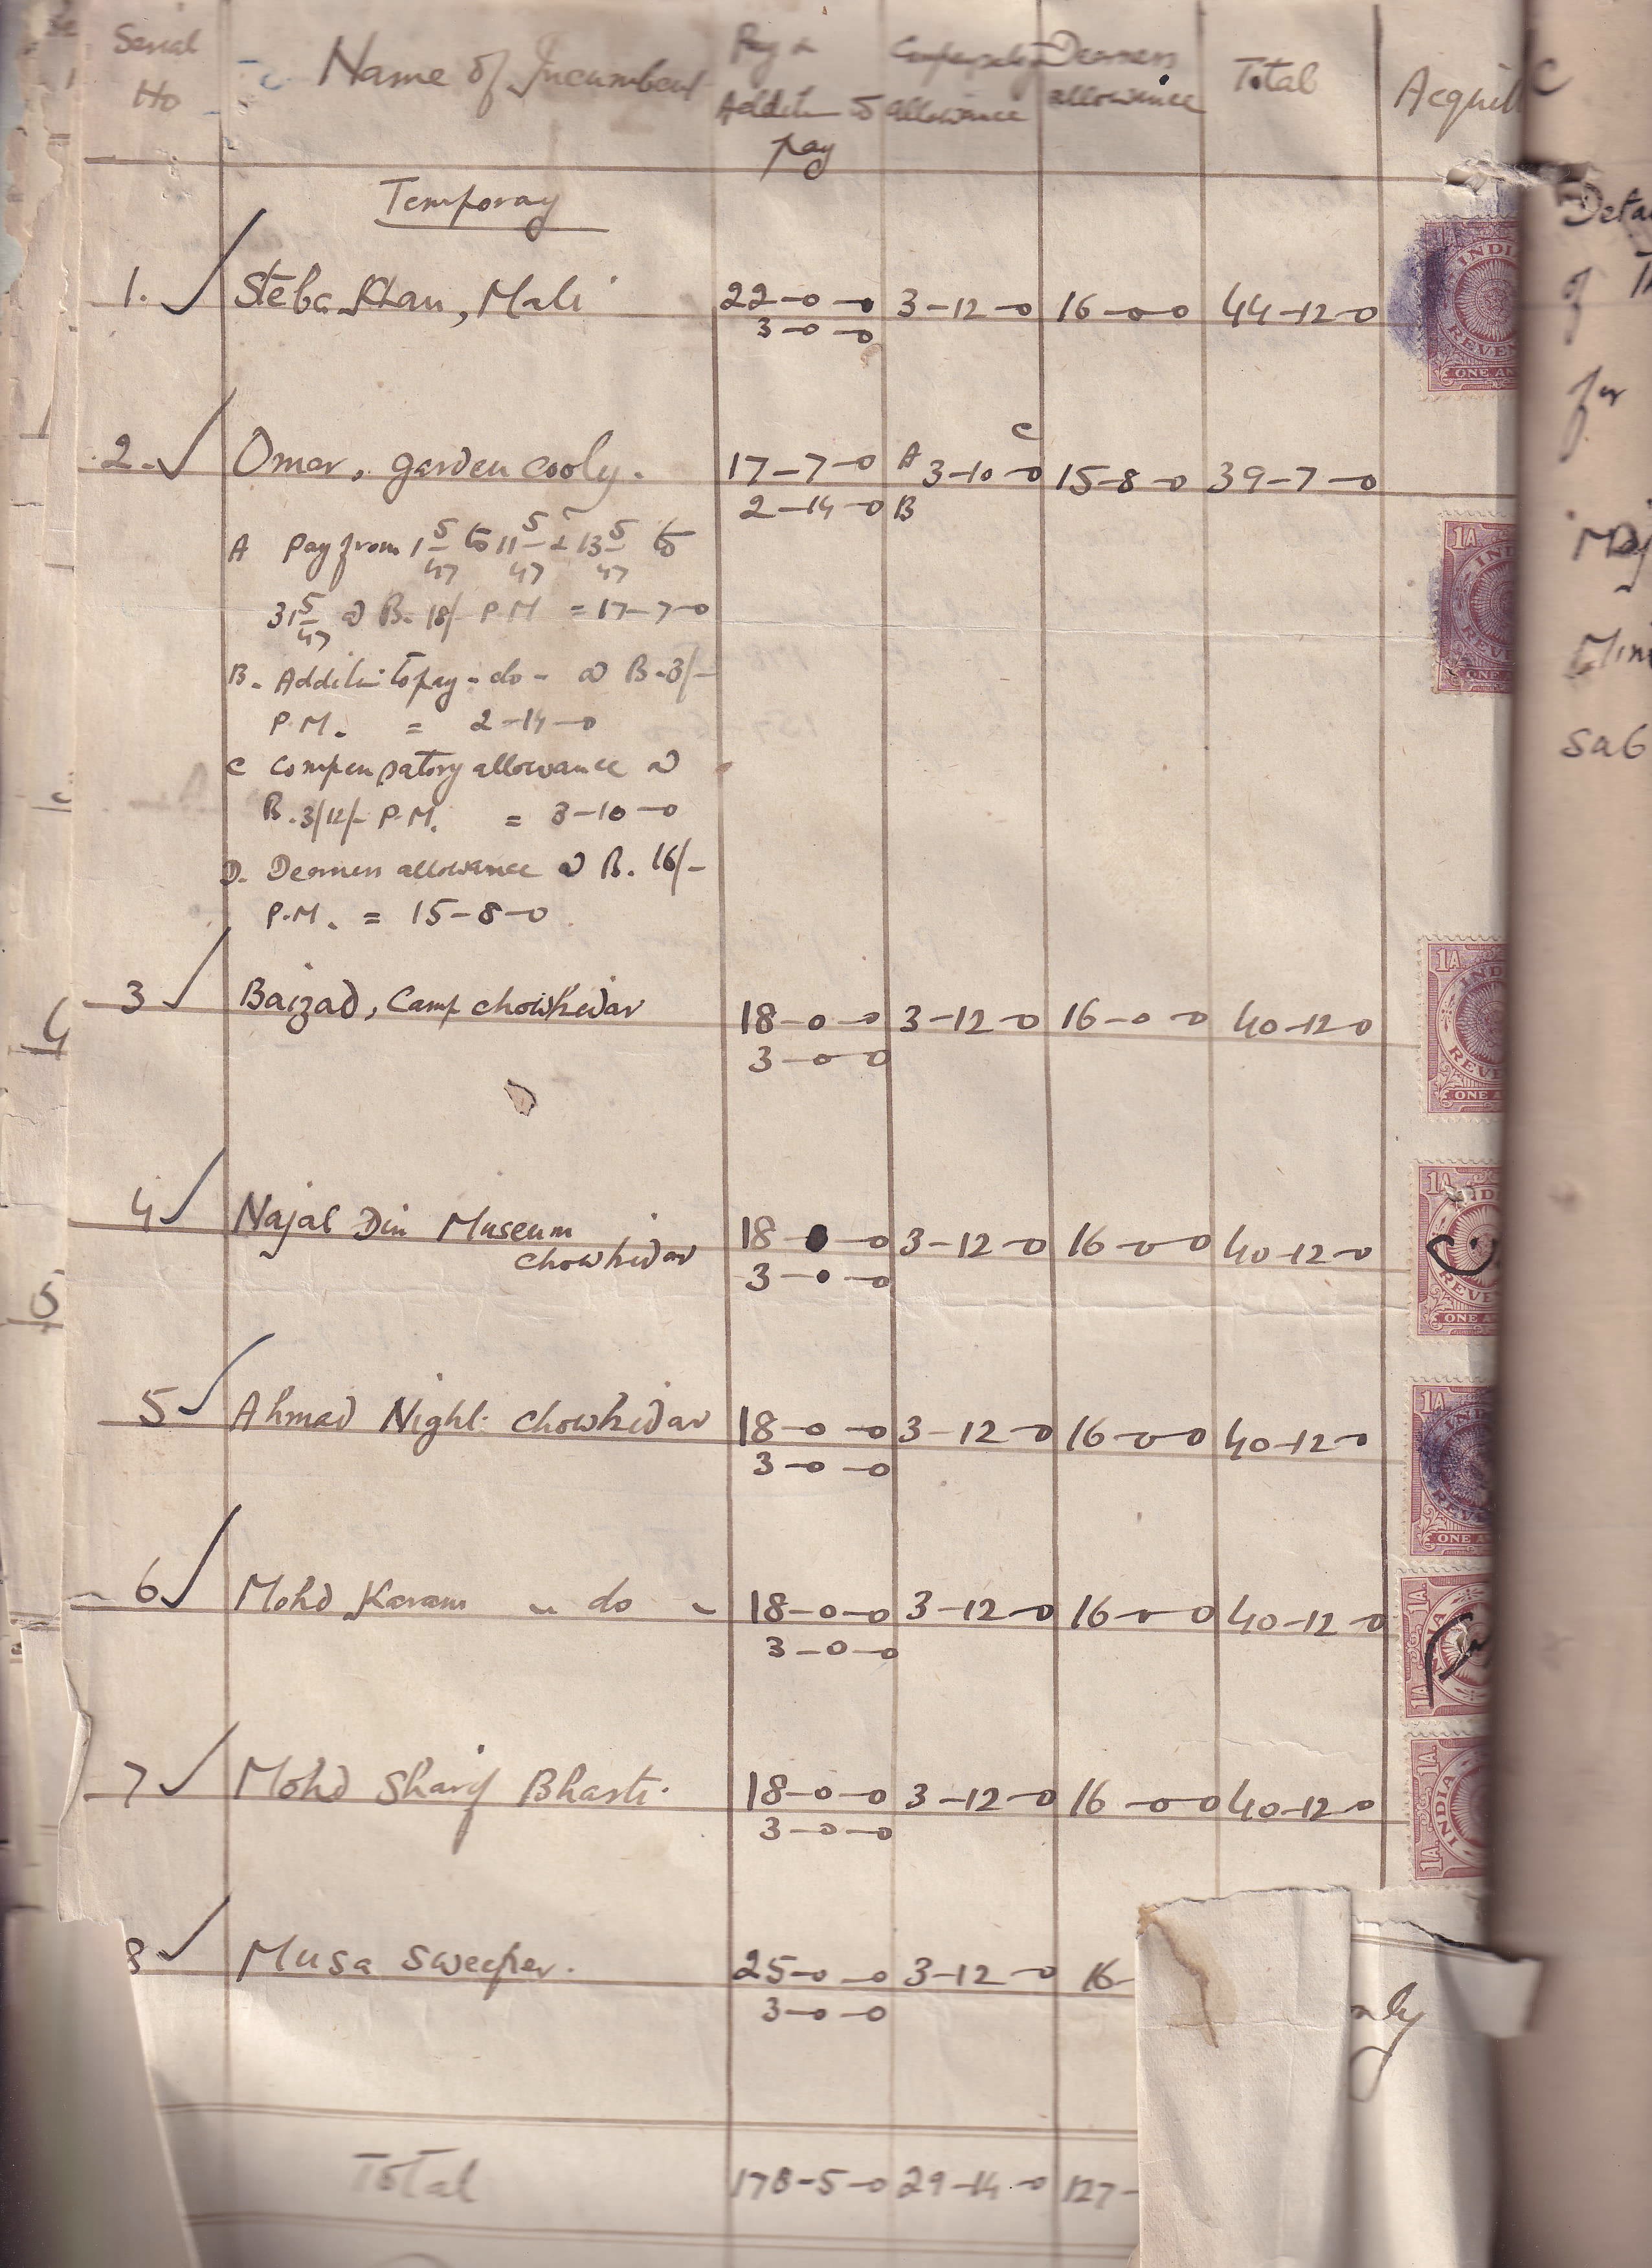 Serial No
Name of Incumbent
Pay & Addition to pay
Compensatory allowance
Dearness allowance
Total
Acquit
Temporay
1. Steba Khan, Mali 22-0-0 3-12-0 16-0-0 44-12-0
3-0-0
2. Omer, garden cooly. 17-7-0 A 3-10-0 C 15-8-0 39-7-0
2-14-0 B
A Pay from 1 5/47 to 11 5/47 & 13 5/47 to
31 5/47 @ R. 18/- P.M = 17-7-0
B. Addition to pay - do - @ R. 3/-
P.M. = 2-14-0
C Compensatory allowance @
R. 3/12/- P.M. = 3-10-0
D. Dearness allowance @ R. 16/-
P.M. = 15-8-0
3 Baizad, Camp chowkidar 18-0-0 3-12-0 16-0-0 40-12-0
3-0-0
4 Najal Din Museum 18-0-0 3-12-0 16-0-0 40-12-0
chowkidar 3-0-0
5 Ahmad Night chowkidar 18-0-0 3-12-0 16-0-0 40-12-0
3-0-0
6 Mohd Karam " do " 18-0-0 3-12-0 16-0-0 40-12-0
3-0-0
7 Mohd Sharif Bhasti. 18-0-0 3-12-0 16-0-0 40-12-0
3-0-0
8 Musa Sweeper. 25-0-0 3-12-0 16-
3-0-0
only
Total 178-5-0 29-14-0 127-
1A INDIA REVENUE ONE ANNA
1A
1A
1A
1A
1A 1A INDIA
1A 1A INDIA